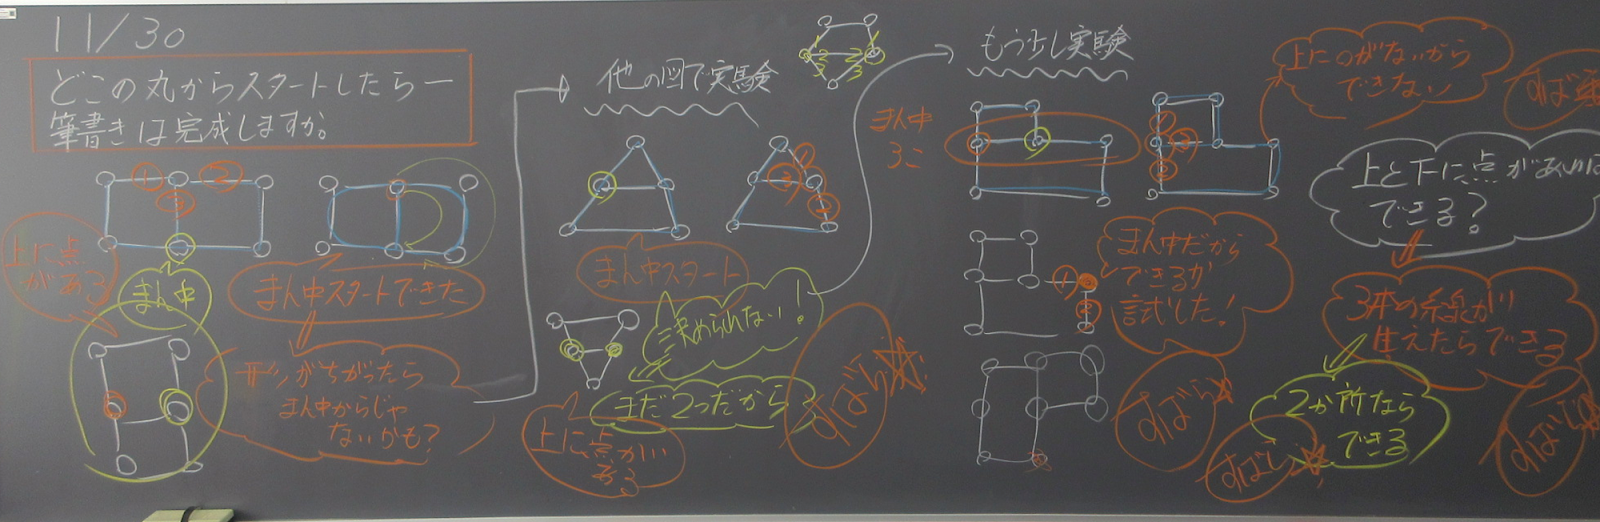 11/30
どこの丸からスタートしたら一
筆書きは完成しますか。
① ②
③
上に点
がある
まん中
まん中スタートできた
形がちがったら
まん中からじゃ
ないかも?
他の図で実験
1 1
2 2
3 3
① ② ③
まん中スタート
決められない!
まだ2つだから
上に点が
ある
すばらしい
もう少し実験
まん中
3こ
① ② ③
上にのがないから
できない
まん中だから
できるか
試した!
① ②
すばら
すばらし
上と下に点があれば
できる?
3本の糸泉が
生えたらできる
2か所なら
できる
すばらし